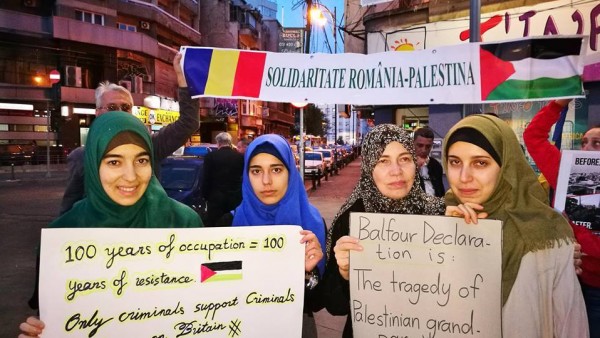 SOLIDARITATE ROMÂNIA-PALESTINA
100 years of occupation = 100
years of resistance.
Only criminals support Criminals
Britain
Balfour Declara-
tion is:
The tragedy of
Palestinian grand-
BEFORE
AFTER